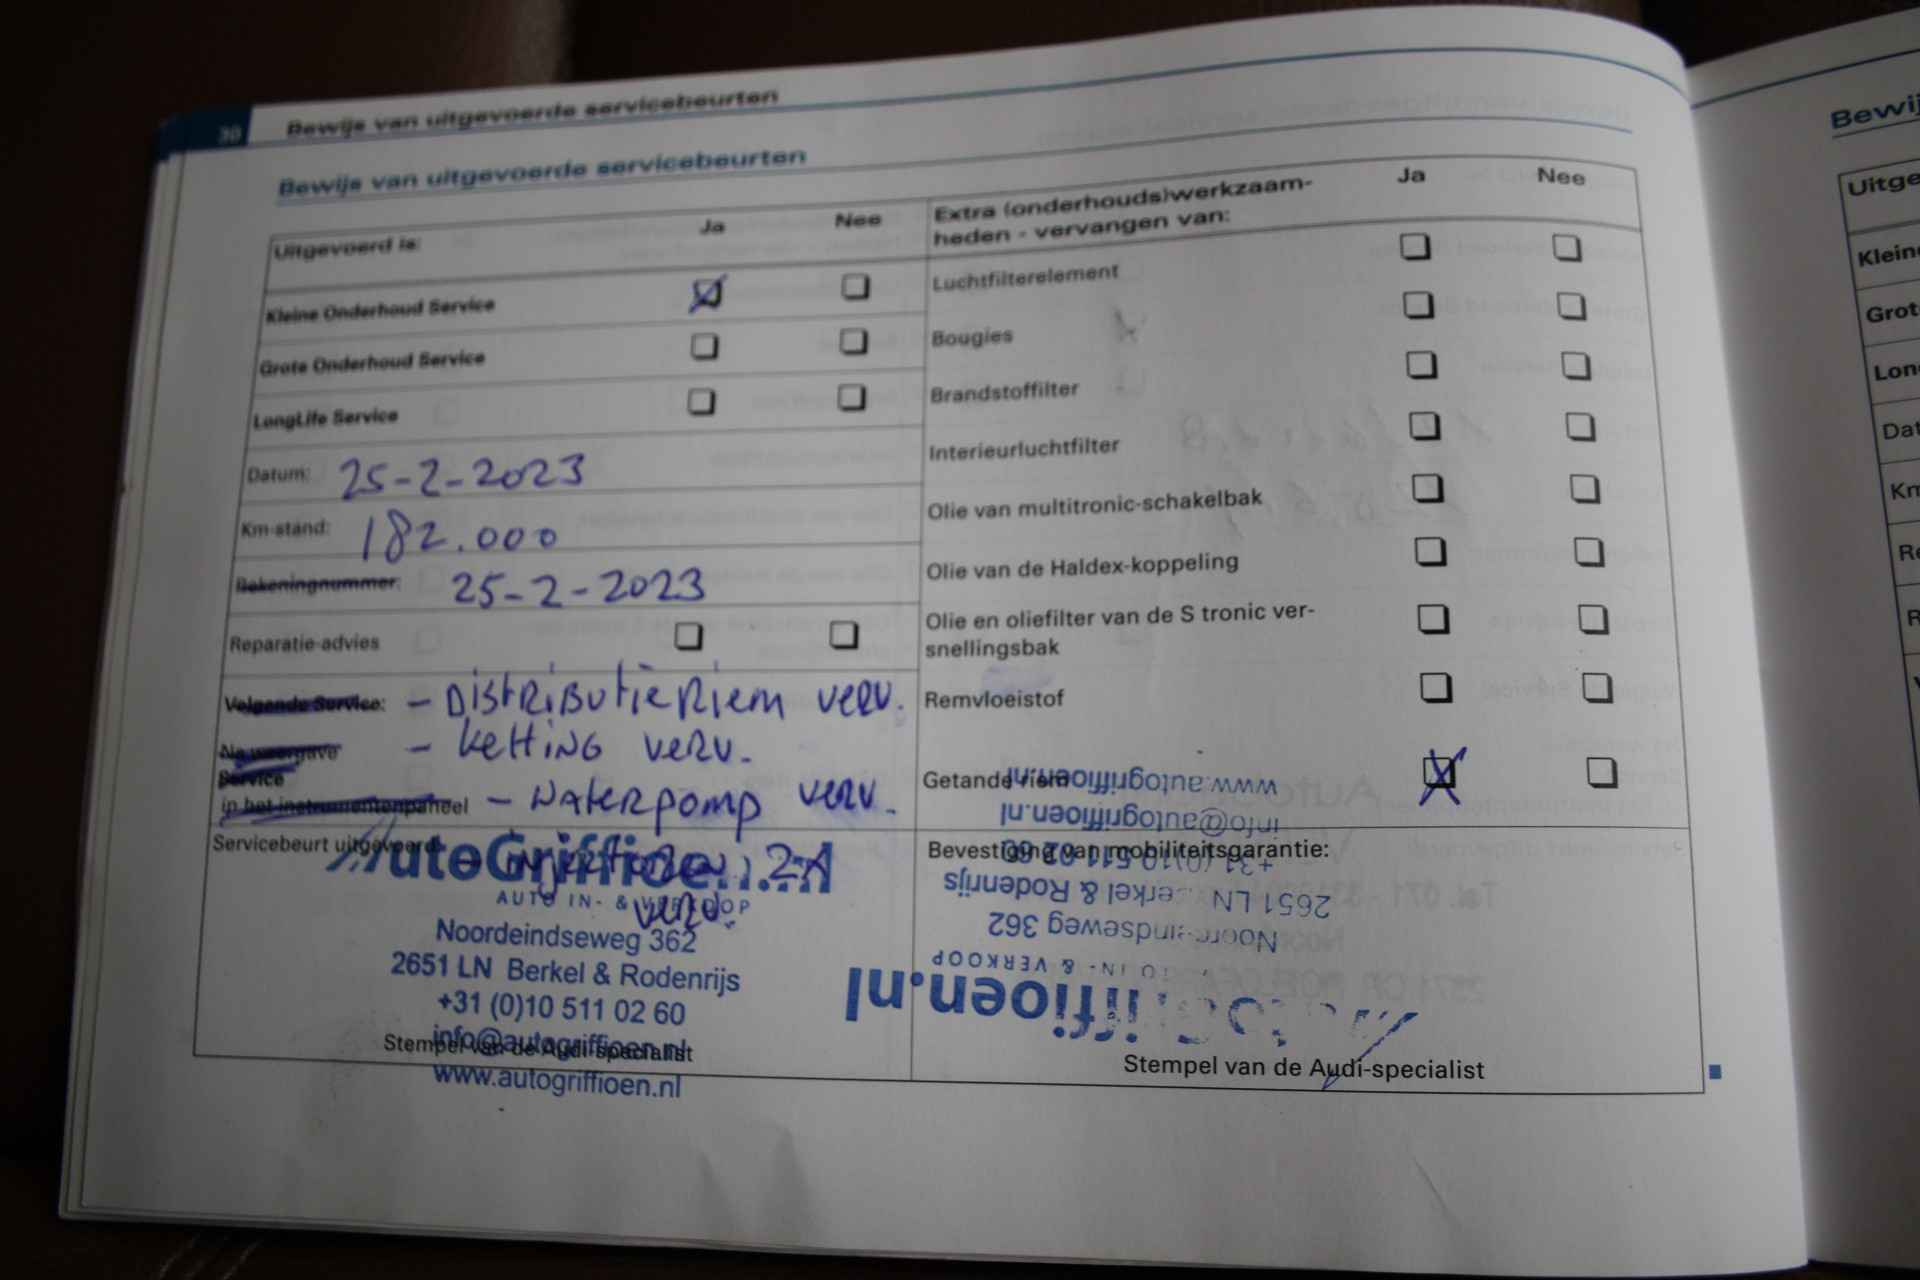 30
Bewijs van uitgevoerde servicebeurten
Bewijs van uitgevoerde servicebeurten
Uitgevoerd is: Ja Nee
Kleine Onderhoud Service
Grote Onderhoud Service
LongLife Service
Datum: 25-2-2023
Km-stand: 182.000
Rekeningnummer: 25-2-2023
Reparatie-advies
Volgende Service: - DistRiButieRiem verv.
Na weergave - KettiNG verv.
Service
in het instrumentenpaneel - Waterpomp verv.
Servicebeurt uitgevoerd:
- injectoren 2x
verv.
AutoGriffioen.nl
AUTO IN- & VERKOOP
Noordeindseweg 362
2651 LN Berkel & Rodenrijs
+31 (0)10 511 02 60
info@autogriffioen.nl
Stempel van de Audi-specialist
www.autogriffioen.nl
Extra (onderhouds)werkzaam-
heden - vervangen van: Ja Nee
Luchtfilterelement
Bougies
Brandstoffilter
Interieurluchtfilter
Olie van multitronic-schakelbak
Olie van de Haldex-koppeling
Olie en oliefilter van de S tronic ver-
snellingsbak
Remvloeistof
Getande riem
Bevestiging van mobiliteitsgarantie:
www.autogriffioen.nl
info@autogriffioen.nl
+31 (0)10 511 02 60
2651 LN Berkel & Rodenrijs
Noordeindseweg 362
AUTO IN- & VERKOOP
AutoGriffioen.nl
Stempel van de Audi-specialist
Bewij
Uitge
Kleine
Grot
Lon
Dat
Km
Re
R
V